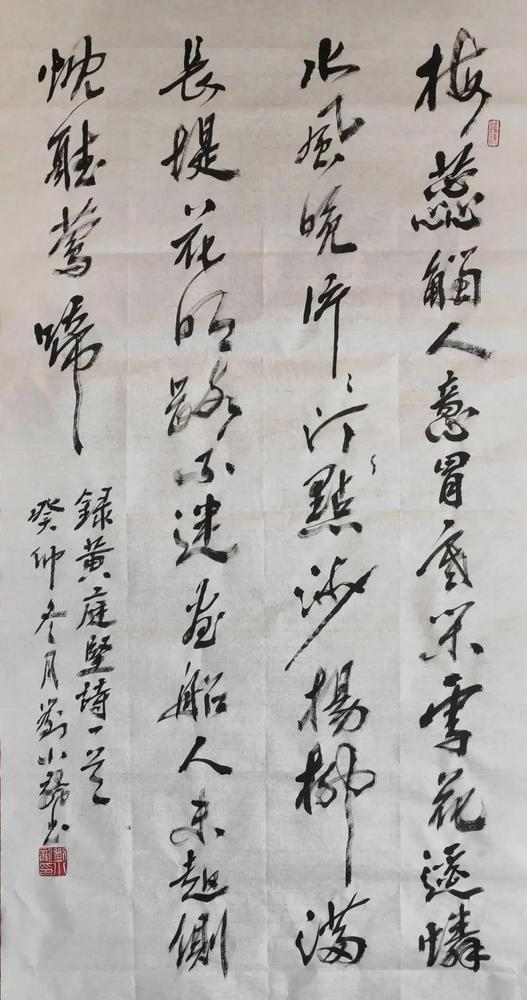 梅蕊觸人意冒寒開雪花遙憐
水風晚片〻汀點沙楊柳滿
長堤花明路不迷畫船人未起側
枕聽鶯啼
錄黃庭堅詩一首
癸卯冬月劉小書